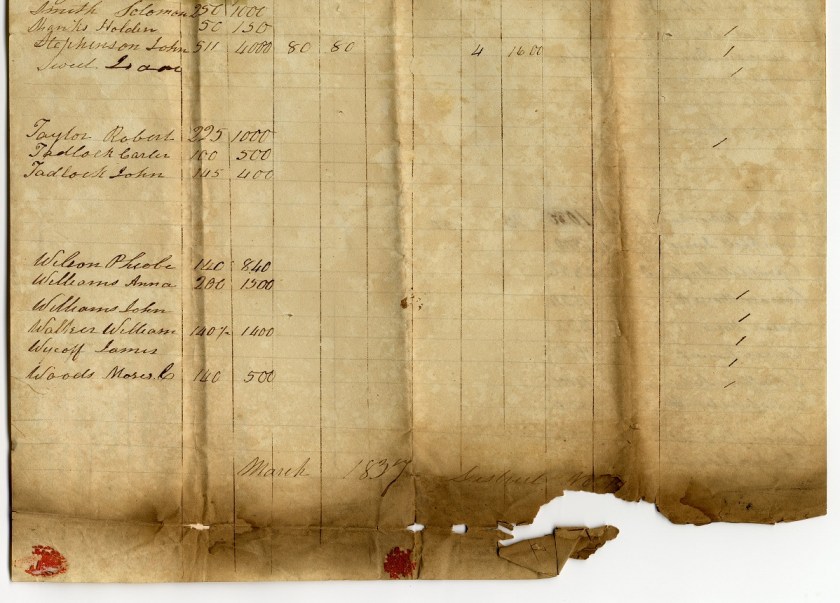 Smith Solomon 250 1000
Shanks Holden 50 150 /
Stephenson John 511 4000 80 80 4 1600 /
Sweet Isaac /
Taylor Robert 225 1000 /
Tadlock Carter 100 500
Tadlock John 145 400
Wilson Pheobe 140 840
Williams Anna 200 1500 /
Williams John /
Walker William 140 1/2 1400 /
Wycoff James /
Woods Moses C 140 500 /
March 1837 District